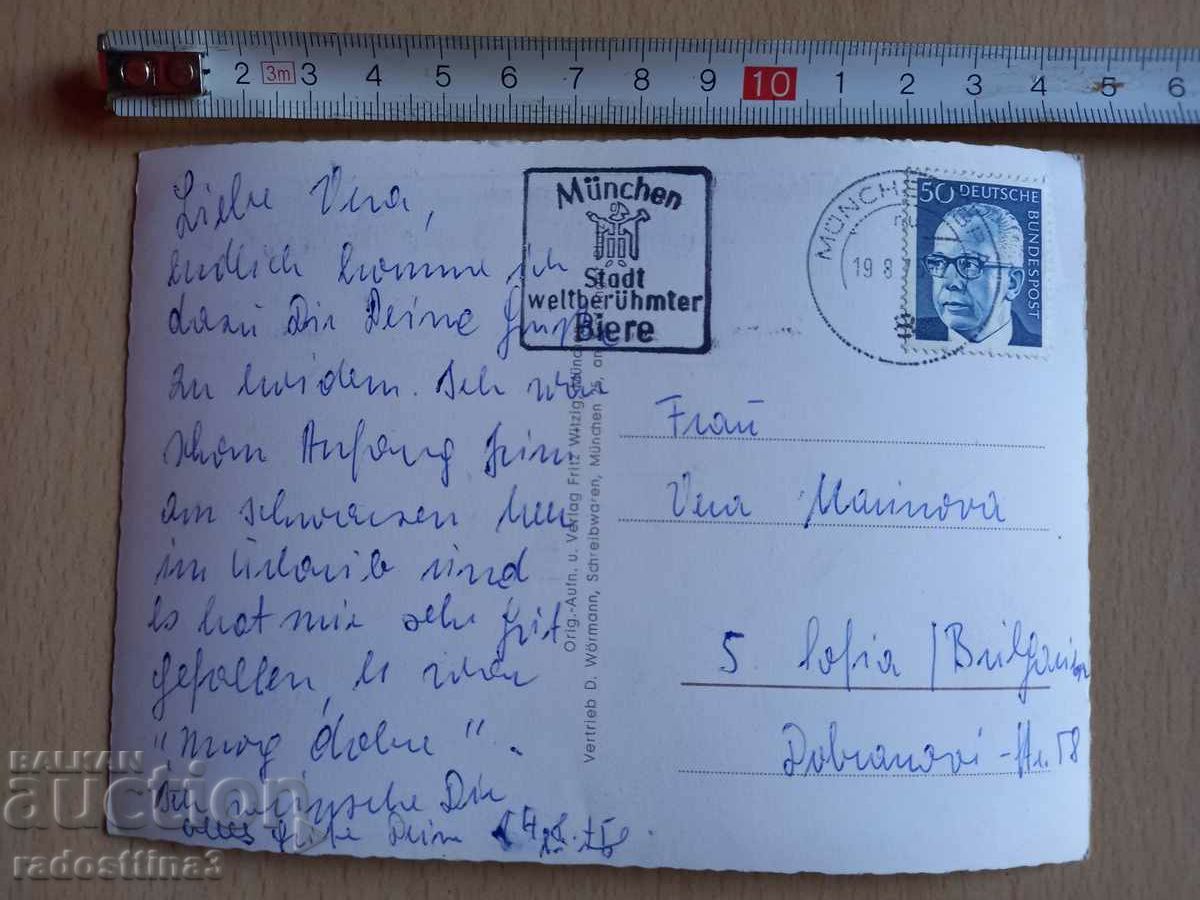 2 3m 3 4 5 6 7 8 9 10 1 2 3 4 5 6
Liebe Vera,
endlich komme ich
dazu Dir Deine Grüße
zu erwidern. Ich war
schon Anfang Juni
am schwarzen Meer
im Urlaub und
es hat mir sehr gut
gefallen, es war
"mnog dobre".
Ich wünsche Dir
alles Gute Deine
München
Stadt
weltberühmter
Biere
MÜNCHE
19 8
50 DEUTSCHE
BUNDESPOST
Orig.-Aufn. u. Verlag Fritz Witzig, Münc
Vertrieb D. Wörmann, Schreibwaren, München 25, am
Frau
Vera Mainova
5 Sofia / Bulgarien
-Str. 58
BALKAN
auction
radosttina3